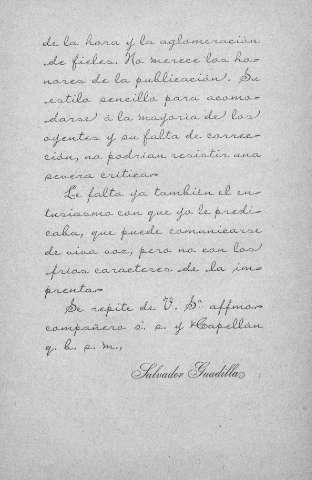 de la hora y la aglomeración
de fieles. No merece los ho-
nores de la publicación. Su
estilo sencillo para acomo-
darse á la mayoria de los
oyentes y su falta de correc-
ción, no podrian resistir una
severa critica.
Le falta ya también el en-
tusiasmo con que yo le predi-
caba, que puede comunicarse
de viva voz, pero no con los
frios caracteres de la im-
prenta.
Se repite de V. Sª affmo.
compañero s. s. y Capellán
q. b. s. m.,
Salvador Guadilla.